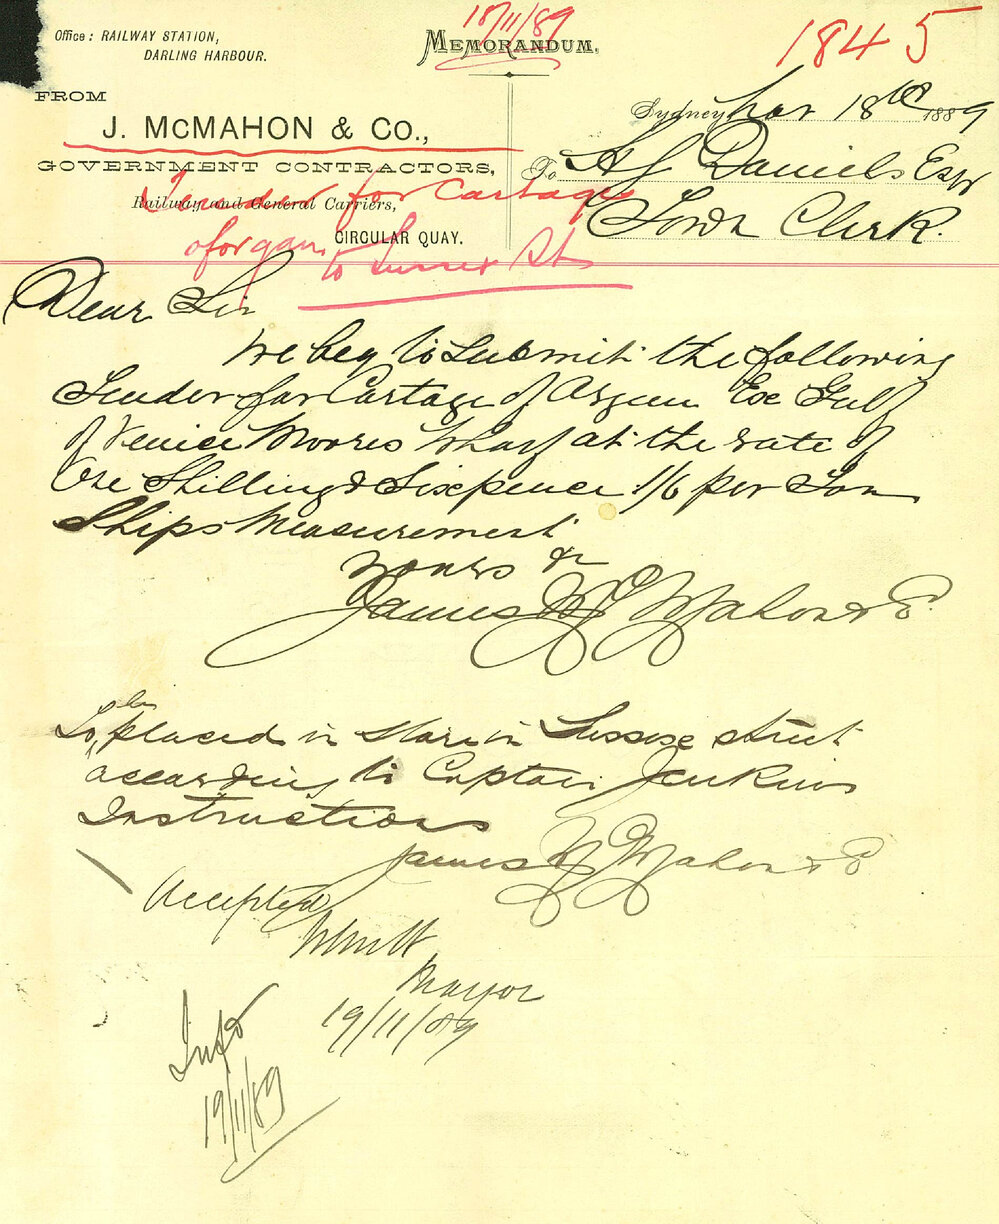 18/11/89
1845
Office: RAILWAY STATION,
DARLING HARBOUR.
MEMORANDUM.
FROM
J. McMAHON & Co.,
GOVERNMENT CONTRACTORS,
Railway and General Carriers,
CIRCULAR QUAY.
Sydney, Nov 18th 1889
To H J Daniels Esqr
Town Clerk.
Tender for Cartage
of organ
to Sussex St
Dear Sir
We beg to Submit the following
Tender for Cartage of Organ Exe Gulf
of Venice Moores Wharf at the rate of
One Shilling & Sixpence 1/6 per Ton
Ships Measurement
Yours &c
James McMahon & Co.
To be placed in Store in Sussexe street
according to Captain Jenkins
Instructions
James McMahon & Co
Accepted
Mayor
19/11/89
Infd
19/11/89